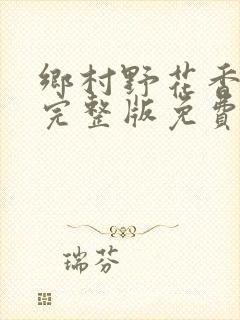 鄉村野花香
完整版免費
瑞芬